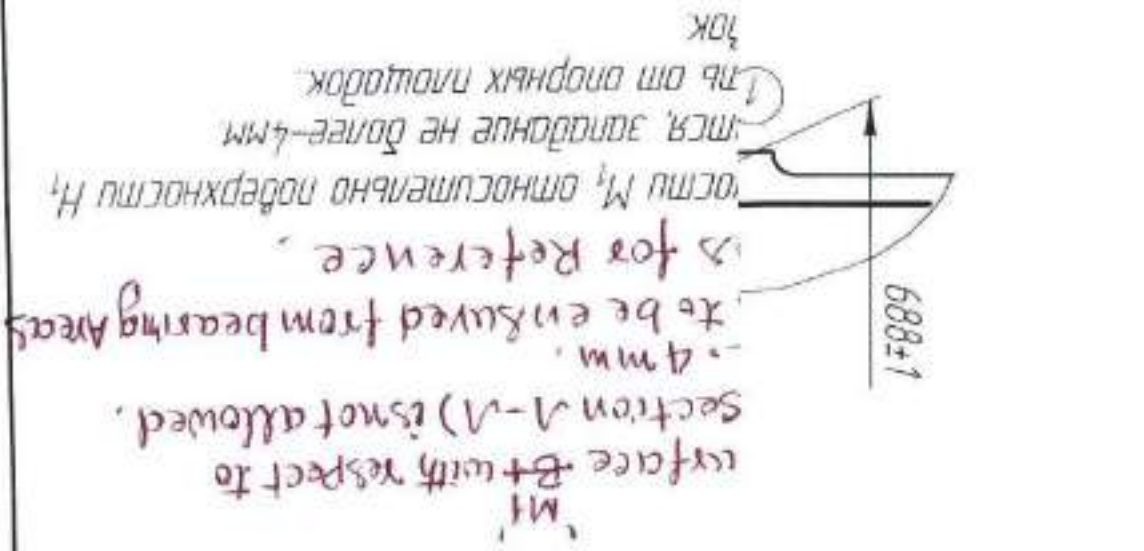 M1
urface B1 with respect to
section Л-Л) is not allowed.
- 4 mm.
to be ensured from bearing Areas
s for Reference.
688±1
ости М₁ относительно поверхности Н₁
тся, западание не более-4мм.
1
ть от опорных площадок.
зок.